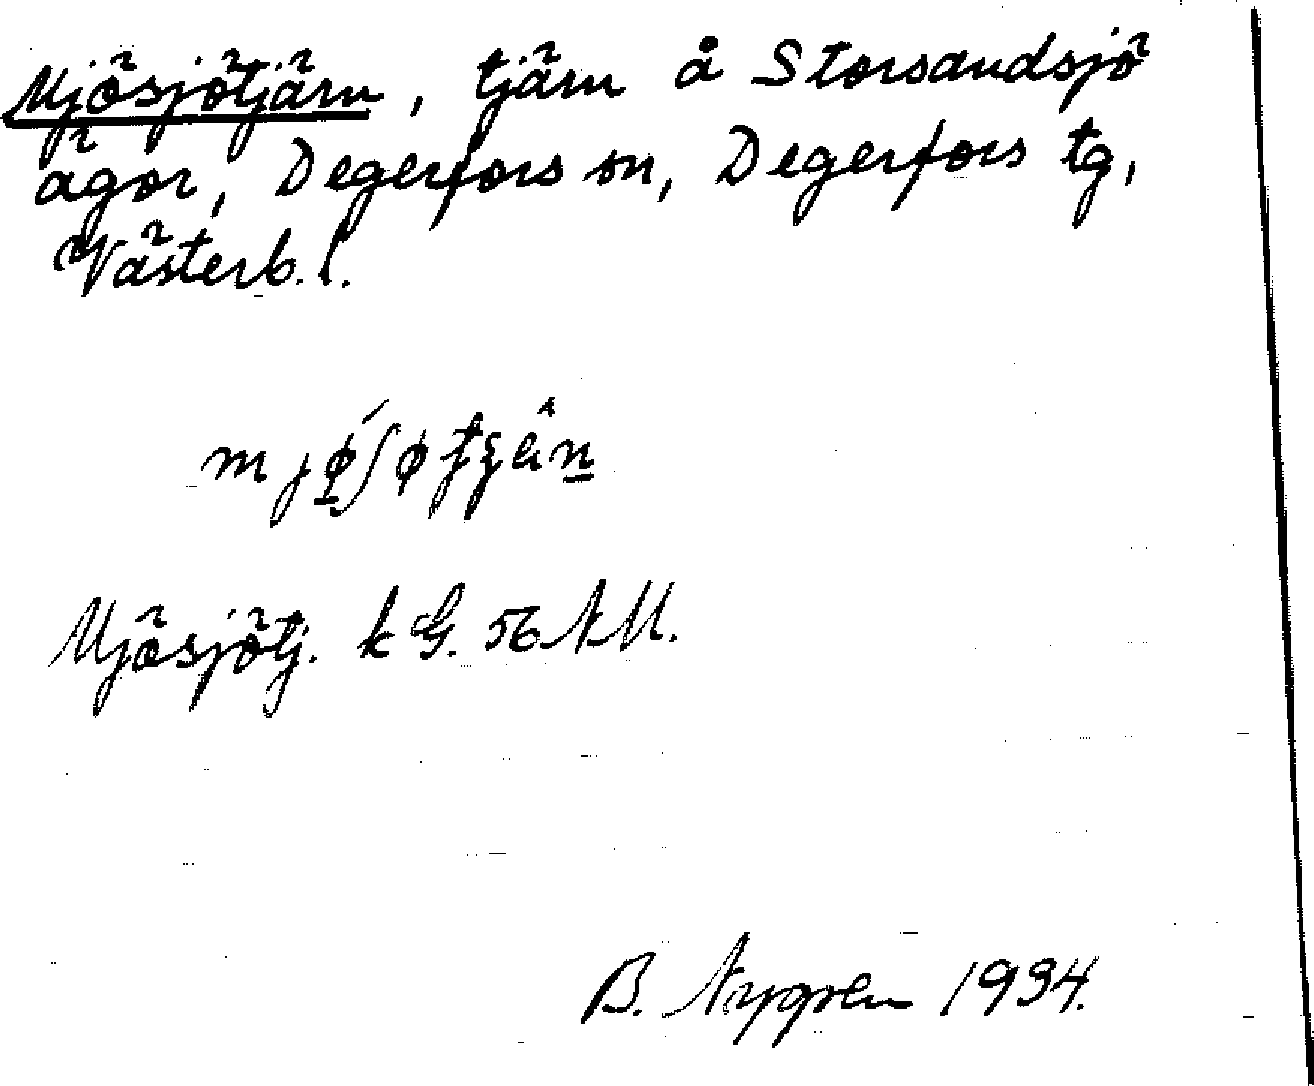 Mjösjötjärn, tjärn å Storsandsjö
ägor, Degerfors sn, Degerfors tg,
Västerb. l.
Mjösjötj. k G. 56 NM.
B. Nygren 1934.